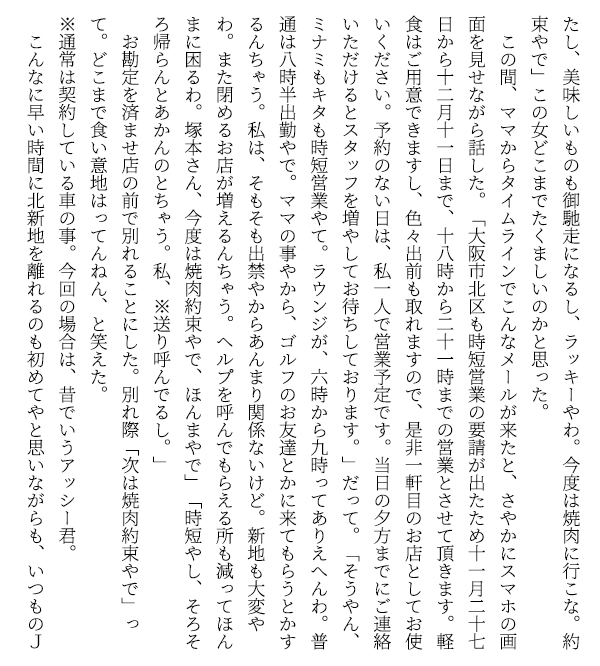 たし、美味しいものも御馳走になるし、ラッキーやわ。今度は焼肉に行こな。約
束やで」この女どこまでたくましいのかと思った。
　この間、ママからタイムラインでこんなメールが来たと、さやかにスマホの画
面を見せながら話した。「大阪市北区も時短営業の要請が出たため十一月二十七
日から十二月十一日まで、十八時から二十一時までの営業とさせて頂きます。軽
食はご用意できますし、色々出前も取れますので、是非一軒目のお店としてお使
いください。予約のない日は、私一人で営業予定です。当日の夕方までにご連絡
いただけるとスタッフを増やしてお待ちしております。」だって。「そうやん、
ミナミもキタも時短営業やて。ラウンジが、六時から九時ってありえへんわ。普
通は八時半出勤やで。ママの事やから、ゴルフのお友達とかに来てもらうとかす
るんちゃう。私は、そもそも出禁やからあんまり関係ないけど。新地も大変や
わ。また閉めるお店が増えるんちゃう。ヘルプを呼んでもらえる所も減ってほん
まに困るわ。塚本さん、今度は焼肉約束やで、ほんまやで」「時短やし、そろそ
ろ帰らんとあかんのとちゃう。私、※送り呼んでるし。」
　お勘定を済ませ店の前で別れることにした。別れ際「次は焼肉約束やで」っ
て。どこまで食い意地はってんねん、と笑えた。
※通常は契約している車の事。今回の場合は、昔でいうアッシー君。
　こんなに早い時間に北新地を離れるのも初めてやと思いながらも、いつものＪ